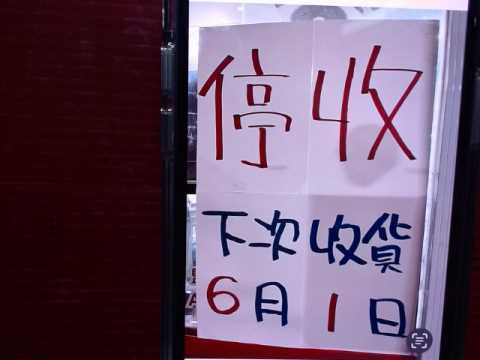 停收
下次收货
6月1日